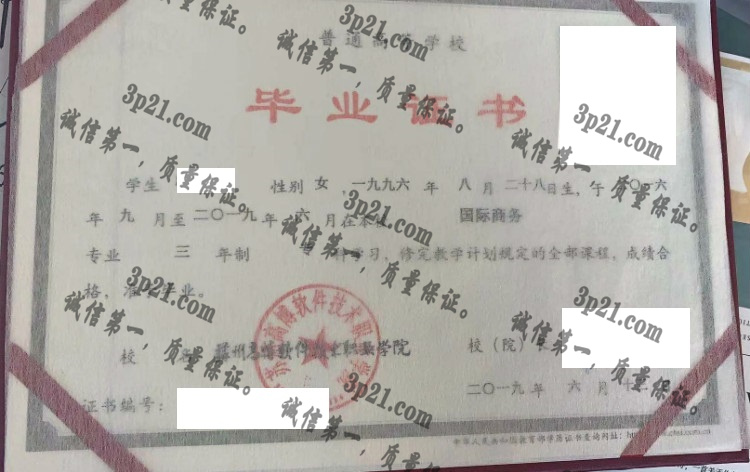 普通高等学校
毕业证书
学生 性别 女 ，一九九六 年 八 月 二十八日生，于 二〇一六
年 九 月至 二〇一九年 六 月在本校 国际商务
专业 三 年制 科学习，修完教学计划规定的全部课程，成绩合
格， 毕业。
校 软件 职业学院 校（院）
二〇一九年 六月
证书编号：
中华人民共和国教育部学历证书查询网址：
3p21.com
诚信第一，质量保证。
3p21.com
诚信第一，质量保证。
3p21.com
诚信第一，质量保证。
3p21.com
诚信第一，质量保证。
3p21.com
诚信第一，质量保证。
3p21.com
诚信第一，质量保证。
3p21.com
诚信第一，质量保证。
3p21.com
诚信第一，质量保证。
质量保证。